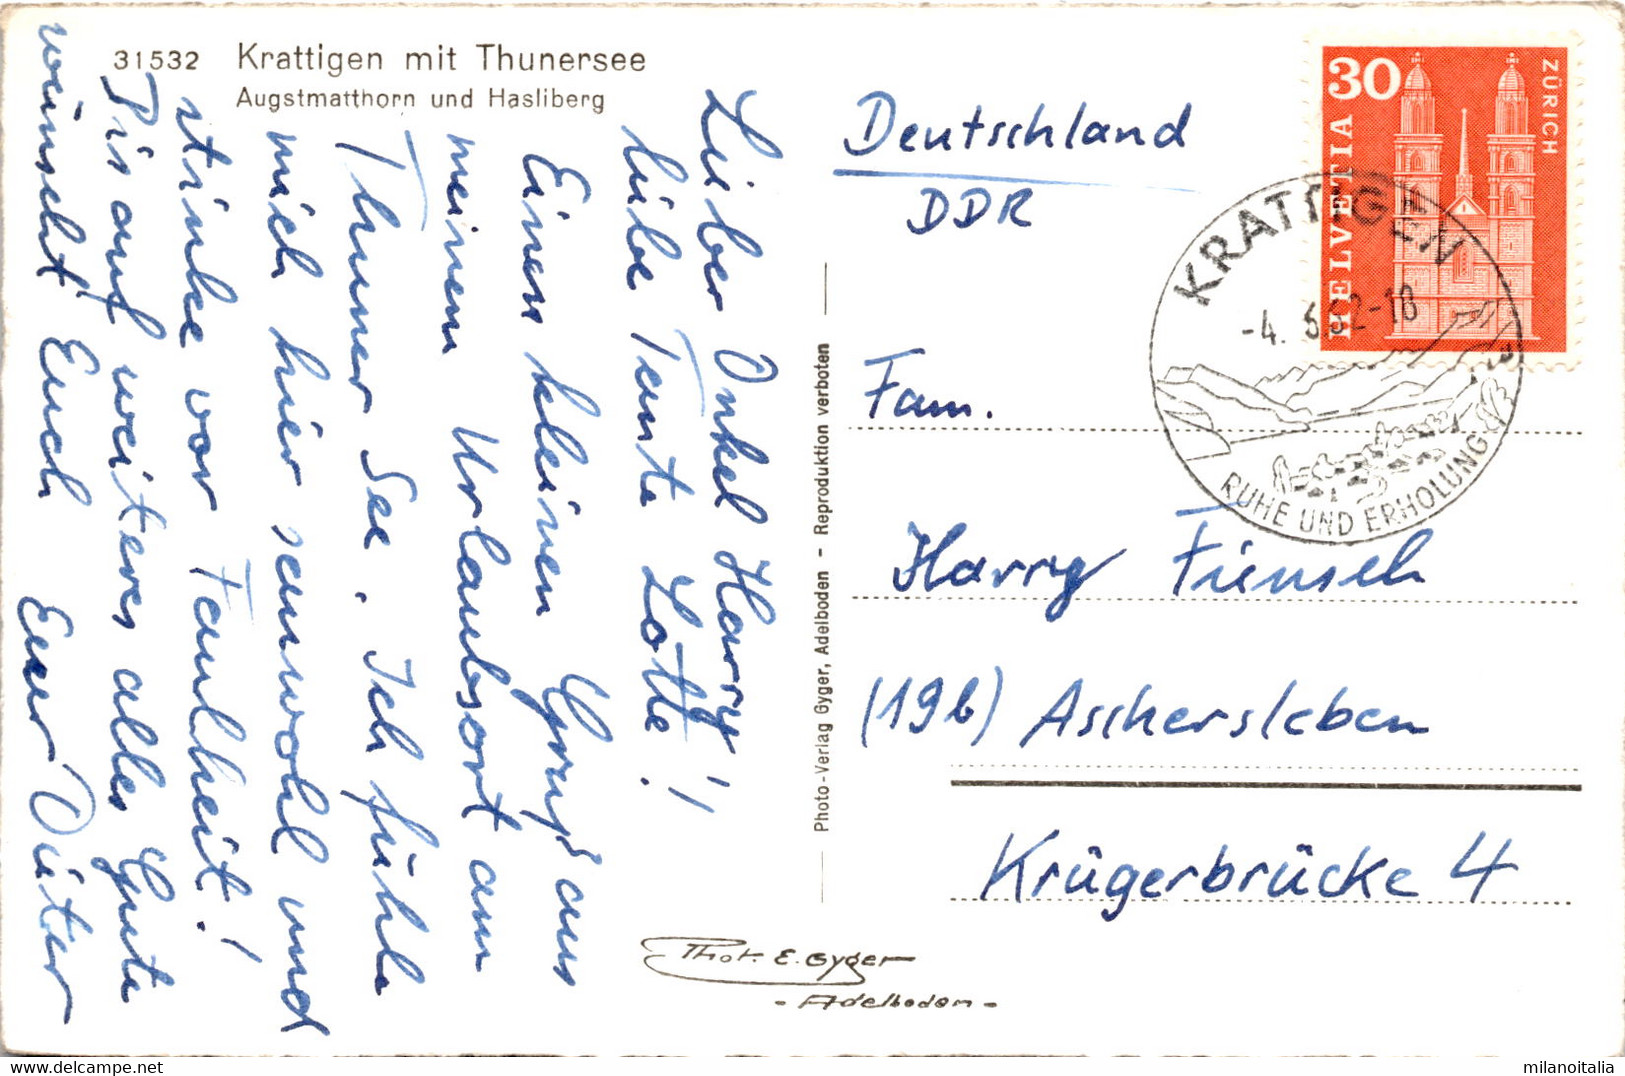 31532 Krattigen mit Thunersee
Augstmatthorn und Hasliberg
Lieber Onkel Harry!
liebe Tante Lotte!
Einen kleinen Gruß aus
meinem Urlaubsort am
Thuner See. Ich fühle
mich hier sauwohl und
stinke vor Faulheit!
Bis auf weiteres alles Gute
wünscht Euch Euer Dieter
Photo-Verlag Gyger, Adelboden - Reproduktion verboten
Phot. E. Gyger
- Adelboden -
Deutschland
DDR
Fam.
Harry
(19b) Aschersleben
Krügerbrücke 4
30
HELVETIA
ZÜRICH
KRATTIGEN
RUHE UND ERHOLUNG
milanoitalia